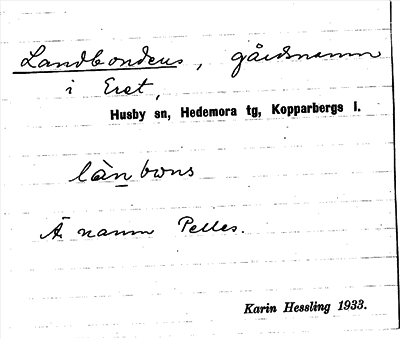 Landbondens, gårdsnamn
i Eret,
Husby sn, Hedemora tg, Kopparbergs l.
lànbons
Ä. namn Pelles.
Karin Hessling 1933.